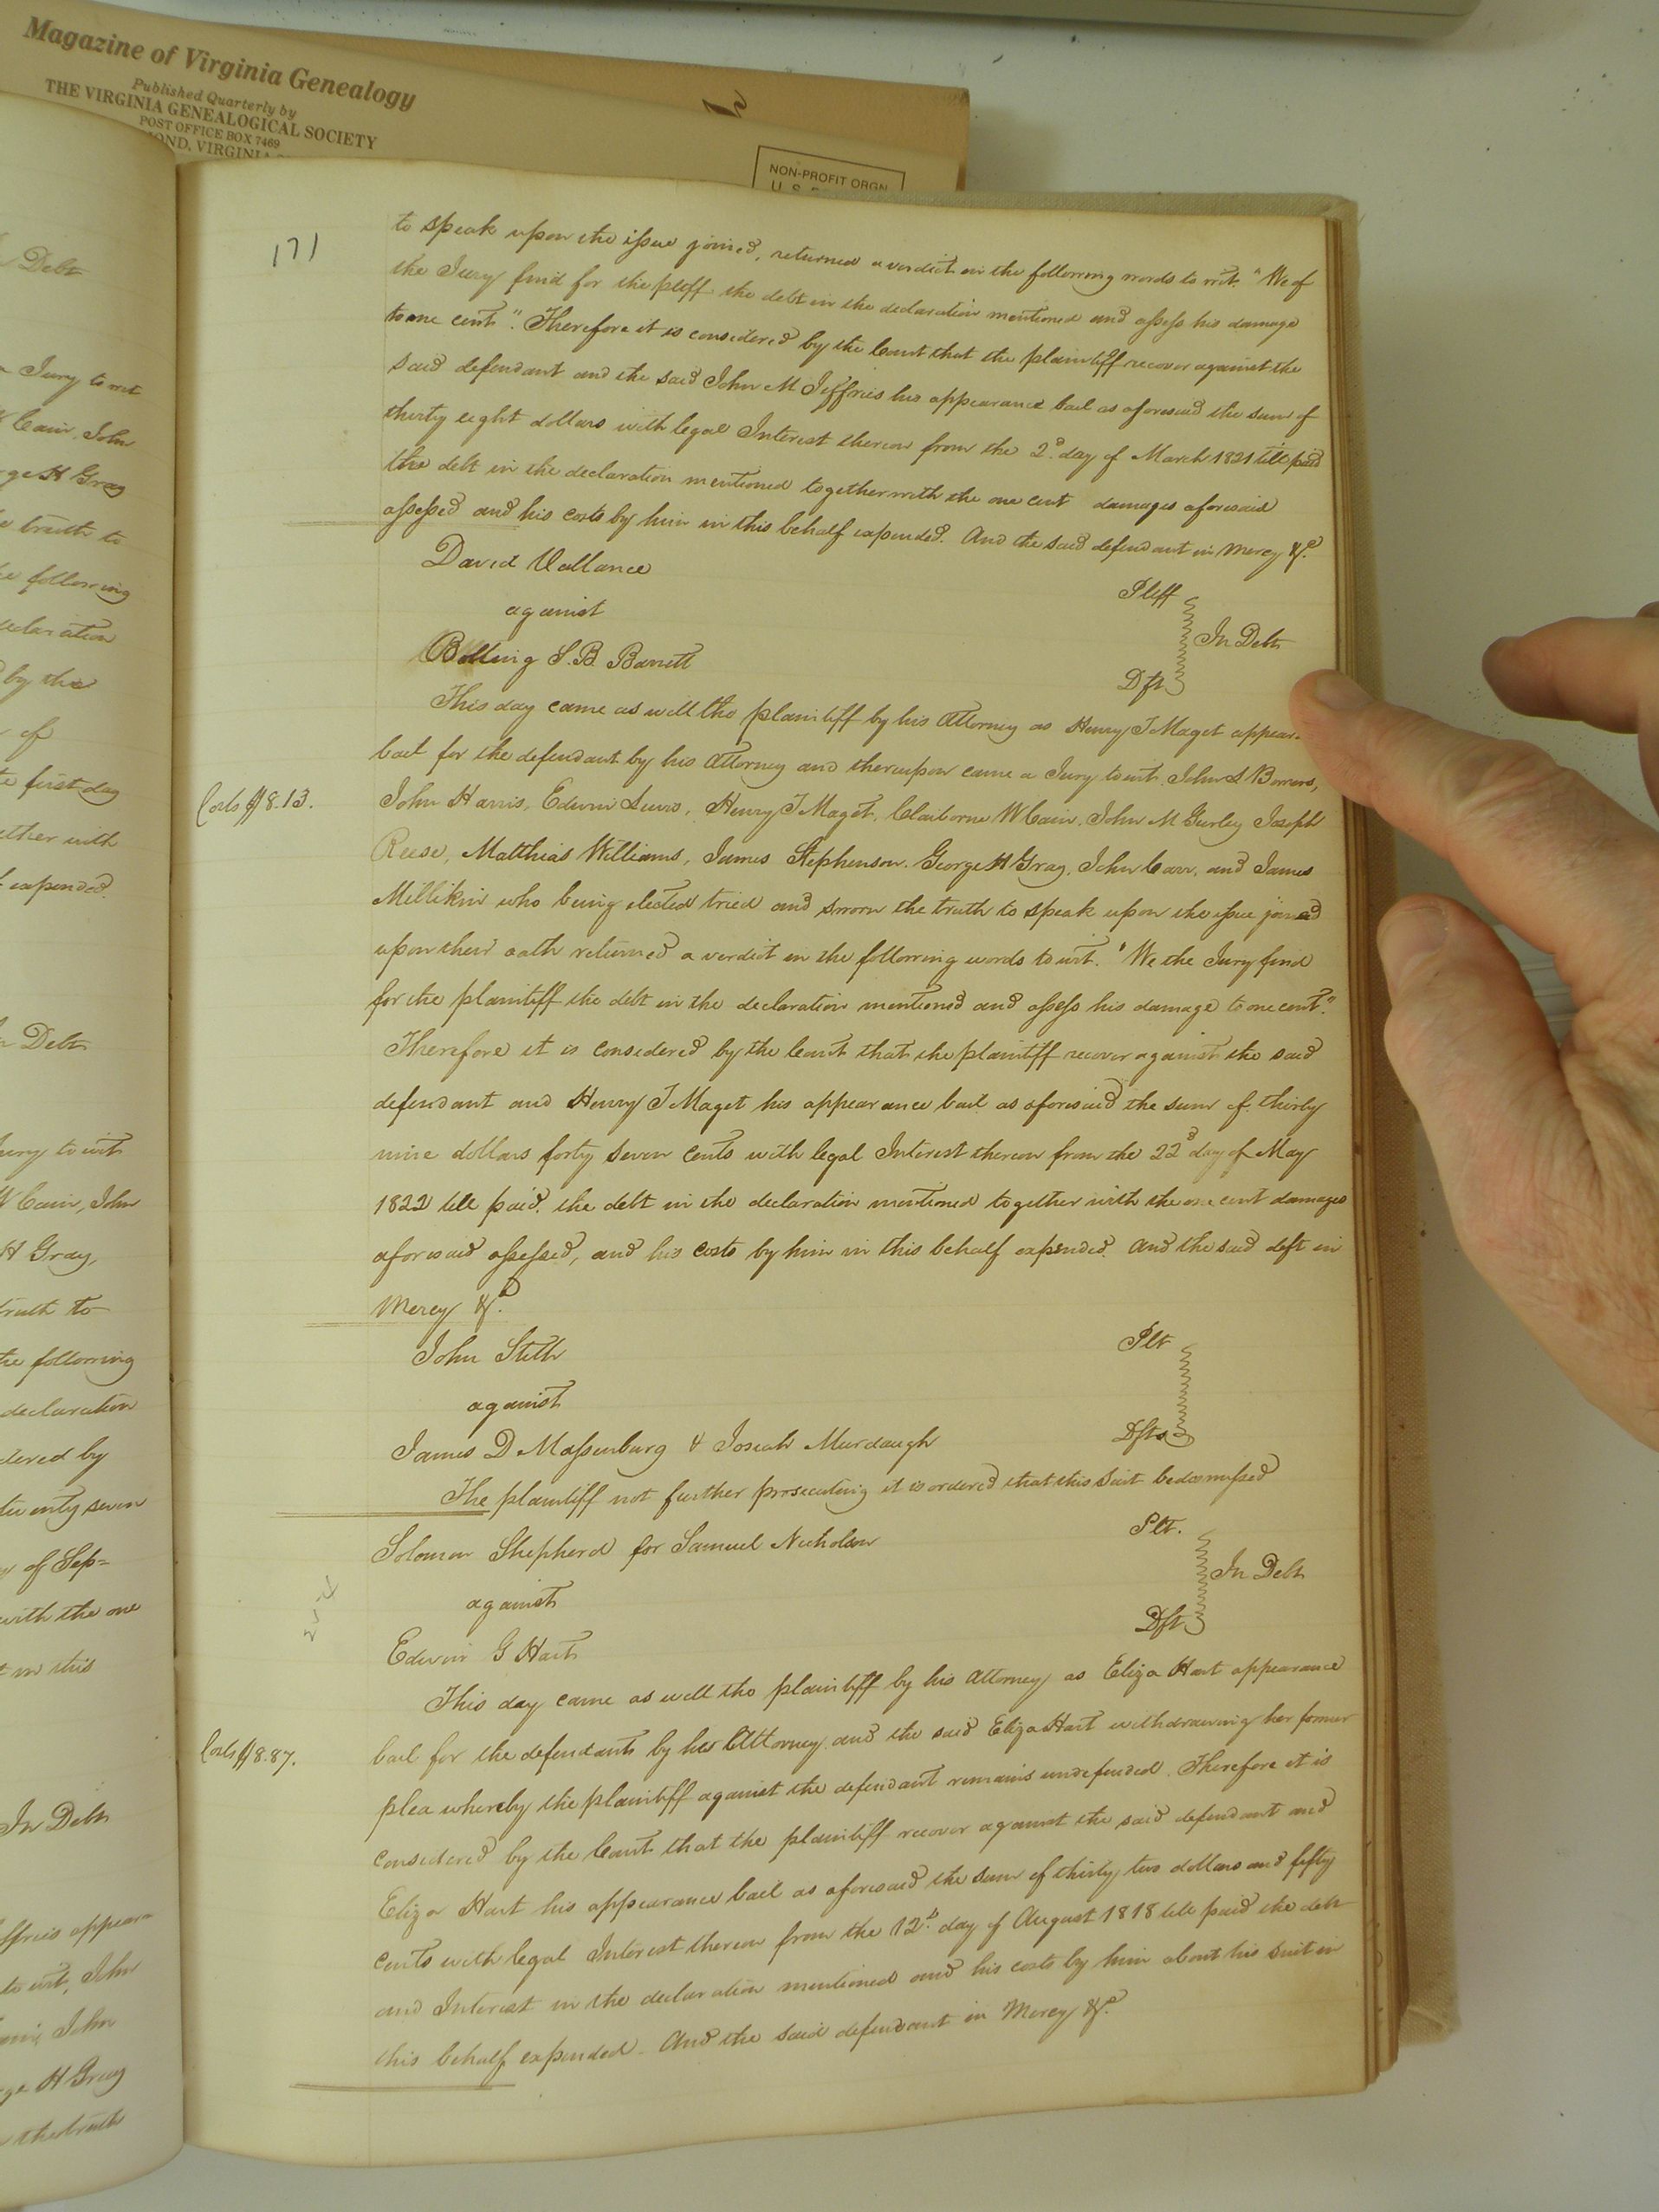 Magazine of Virginia Genealogy
Published Quarterly by
THE VIRGINIA GENEALOGICAL SOCIETY
POST OFFICE BOX 7469
NON-PROFIT ORGN
171
to speak upon the issue joined, returned a verdict in the following words to wit. "We of
the Jury find for the pltff the debt in the declaration mentioned and assess his damage
to one cent". Therefore it is considered by the Court that the plaintiff recover against the
said defendant and the said John M Jeffries his appearance bail as aforesaid the sum of
thirty eight dollars with legal Interest thereon from the 2d. day of March 1821 till paid
the debt in the declaration mentioned together with the one cent damages aforesaid
assessed and his costs by him in this behalf expended. And the said defendant in Mercy &c.
David Vallance Pltff
against In Debt
Bolling S. B. Barrett Dft
This day came as well the plaintiff by his Attorney as Henry J Maget appear
bail for the defendant by his Attorney and thereupon came a Jury to wit. John S Borrows,
Costs $8.13.
John Harris, Edwin Lewis, Henry J Maget, Claiborne W Cain, John M Gurley Joseph
Reese, Matthias Williams, James Stephenson, George H Gray, John Carr, and James
Millikin who being elected tried and sworn the truth to speak upon the issue joined
upon their oath returned a verdict in the following words to wit. "We the Jury find
for the plaintiff the debt in the declaration mentioned and assess his damage to one cent".
Therefore it is considered by the Court that the plaintiff recover against the said
defendant and Henry J Maget his appearance bail as aforesaid the sum of thirty
nine dollars forty seven cents with legal Interest thereon from the 22d day of May
1822 till paid. the debt in the declaration mentioned together with the one cent damages
aforesaid assessed, and his costs by him in this behalf expended. And the said deft in
Mercy &c.
John Stith Plt
against
James D Massenburg & Josiah Murdaugh Dfts
The plaintiff not further prosecuting it is ordered that this Suit be dismissed
Solomon Shepherd for Samuel Nicholson Plt.
against In Debt
Edwin G Hart Dft
This day came as well the plaintiff by his Attorney as Eliza Hart appearance
bail for the defendants by her Attorney and the said Eliza Hart withdrawing her former
Costs $8.87.
plea whereby the plaintiff against the defendant remains undefended. Therefore it is
considered by the Court that the plaintiff recover against the said defendant and
Eliza Hart his appearance bail as aforesaid the sum of thirty two dollars and fifty
cents with legal Interest thereon from the 12th. day of August 1818 till paid the debt
and Interest in the declaration mentioned and his costs by him about his suit in
this behalf expended - And the said defendant in Mercy &c.